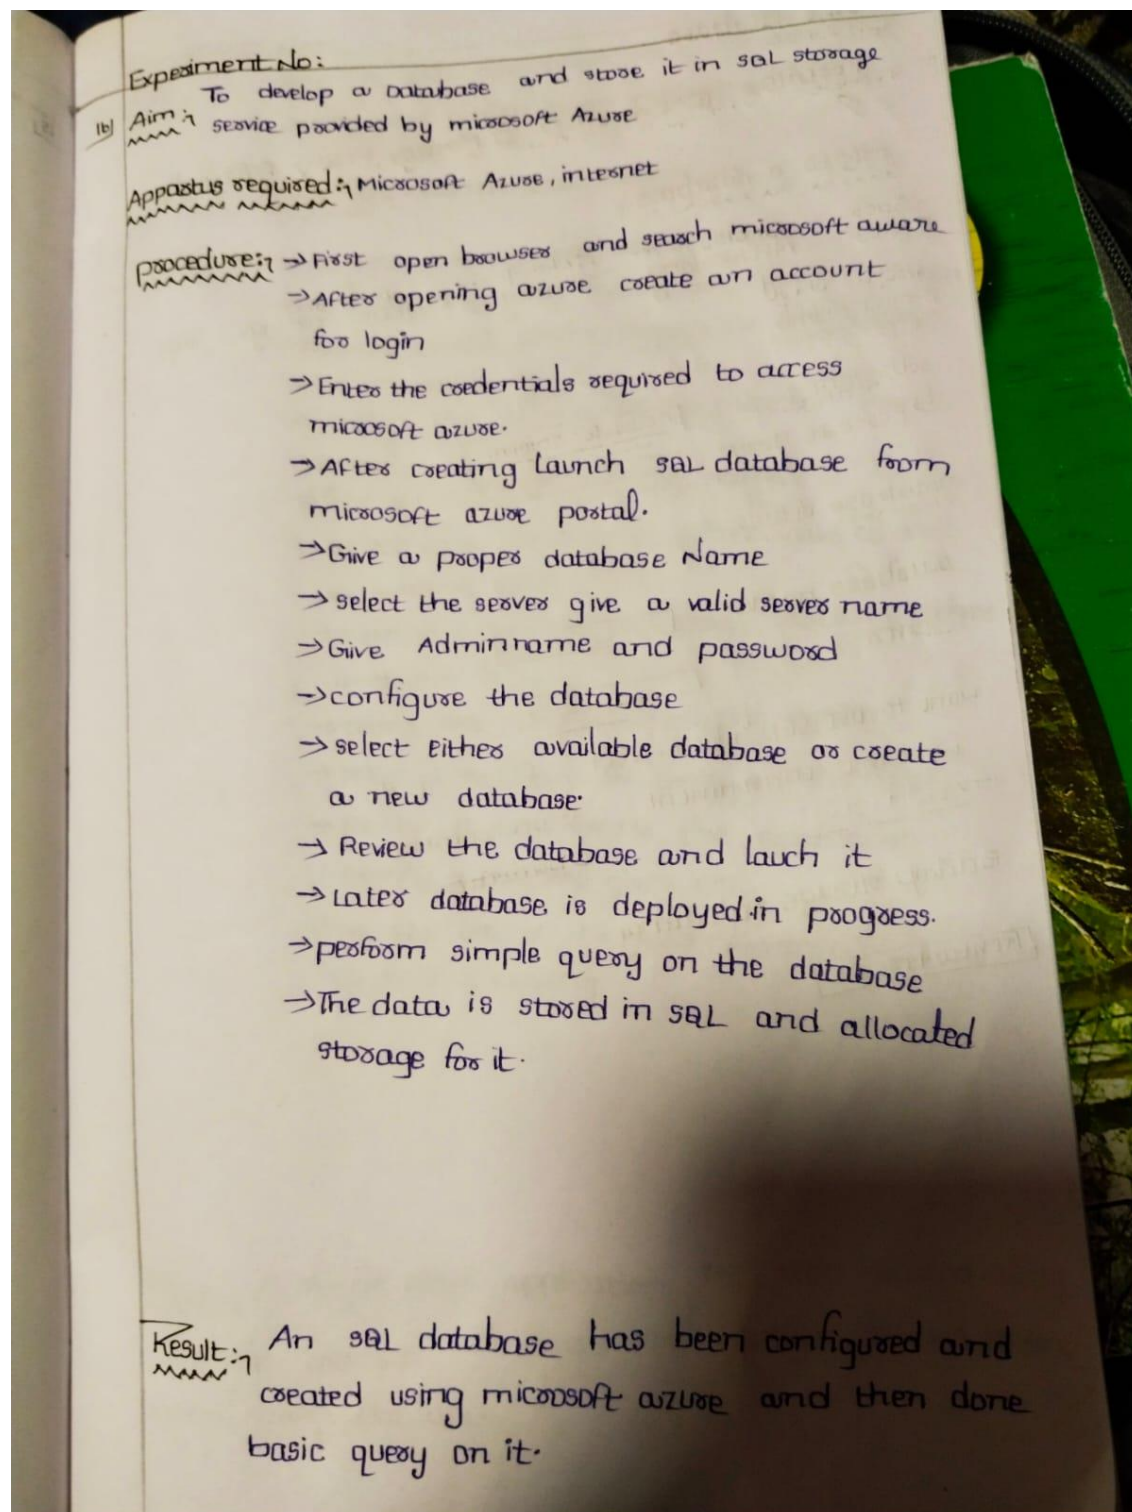 Experiment No:
To develop a Database and store it in SQL storage
1b) Aim:
service provided by microsoft Azure
Appartus required: Microsoft Azure, internet
procedure: → First open browser and search microsoft aware
→ After opening azure create an account
for login
→ Enter the credentials required to access
microsoft azure.
→ After creating Launch SQL database from
microsoft azure portal.
→ Give a proper database Name
→ select the server give a valid server name
→ Give Admin name and password
→ configure the database
→ select Either available database or create
a new database.
→ Review the database and lauch it
→ Later database is deployed in progress.
→ perform simple query on the database
→ The data is stored in SQL and allocated
storage for it.
Result: An SQL database has been configured and
created using microsoft azure and then done
basic query on it.